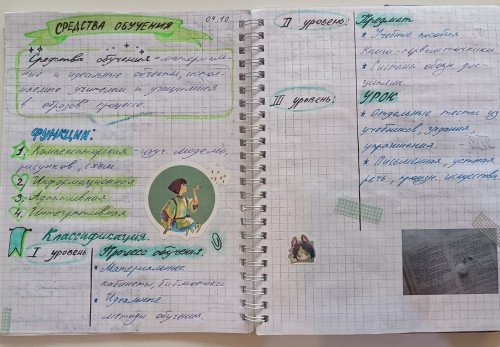 СРЕДСТВА ОБУЧЕНИЯ
04.10
Средства обучения - материаль-
ные и идеальные объекты, исполь-
зуемые учителем и учащимися
в образов. процессе.
ФУНКЦИИ:
1. Компенсаторская - изуч. модели,
рисунков, схем.
2. Информационная
3. Адаптивная
4. Интегративная
Классификация.
I уровень
Процесс обучения.
* Материальные
кабинеты, библиотеки
* Идеальные
методы обучения
II уровень:
Предмет
* Учебные пособия
Книги - первоисточники
* Система обозн. для
III уровень:
УРОК
* Отдельные тексты из
учебников, задания,
упражнения.
* Письменная, устная
речь, произв. искусства.